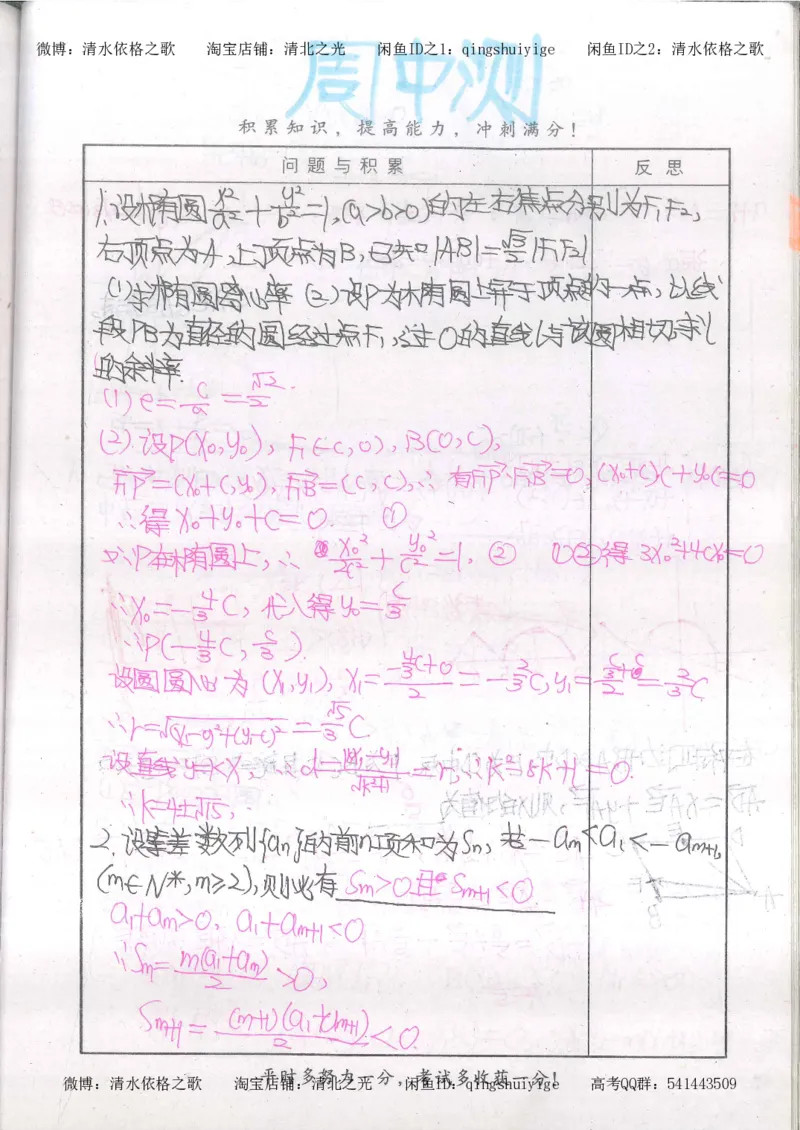 微博：清水依格之歌 淘宝店铺：清北之光 闲鱼ID之1：qingshuiyige 闲鱼ID之2：清水依格之歌
周中测
积累知识，提高能力，冲刺满分！
问题与积累 反思
1.设椭圆x²/a²+y²/b²=1,(a>b>0)的左右焦点分别为F₁F₂,
右顶点为A,上顶点为B,已知|AB|=√3/2|F₁F₂|
(1)求椭圆离心率(2)设P为椭圆上异于顶点的一点,以线
段PB为直径的圆经过点F₁,过O的直线l与该圆相切,求l
的斜率
(1)e=c/a=√2/2.
(2)设P(x₀,y₀),F₁(-c,0),B(0,c),
F₁P=(x₀+c,y₀),F₁B=(c,c),∴有F₁P·F₁B=0,(x₀+c)c+y₀c=0
∴得x₀+y₀+c=0. ①
又∵P在椭圆上,∴x₀²/2c²+y₀²/c²=1. ② ①②得3x₀²+4cx₀=0
∴x₀=-4/3c,代入得y₀=c/3
∴P(-4/3c,c/3).
设圆圆心为(x₁,y₁),x₁=(-4/3c+0)/2=-2/3c,y₁=(c/3+c)/2=2/3c
∴r=√((x₁-0)²+(y₁-c)²)=√5/3c
设直线y=kx,∴d=|kx₁-y₁|/√(k²+1)=r,∴k²-8k+1=0.
∴k=4±√15,
2.设等差数列{an}的前n项和为Sn,若-am<a₁<-am+1,
(m∈N*,m≥2),则必有Sm>0.且Sm+1<0.
a₁+am>0,a₁+am+1<0
∴Sm=m(a₁+am)/2>0,
Sm+1=(m+1)(a₁+am+1)/2<0.
平时多努力一分，考试多收获一分！
微博：清水依格之歌 淘宝店铺：清北之光 闲鱼ID：qingshuiyige 高考QQ群：541443509